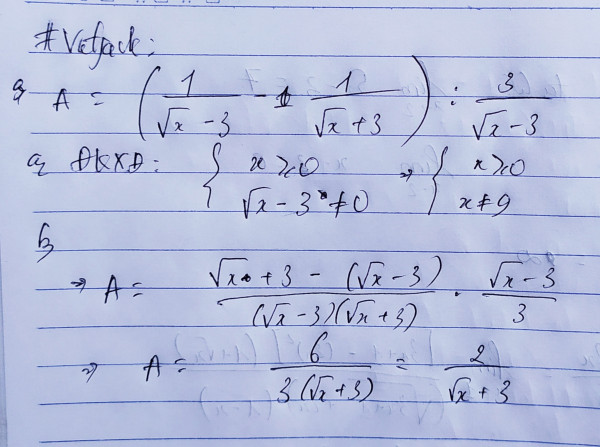 # Vietjack:
a, A = (1/(√x - 3) - 1/(√x + 3)) : 3/(√x - 3)
a, ĐKXĐ: { x ≥ 0 ; √x - 3 ≠ 0 → { x ≥ 0 ; x ≠ 9
b,
→ A = (√x + 3 - (√x - 3))/((√x - 3)(√x + 3)) . (√x - 3)/3
→ A = 6/(3(√x + 3)) = 2/(√x + 3)